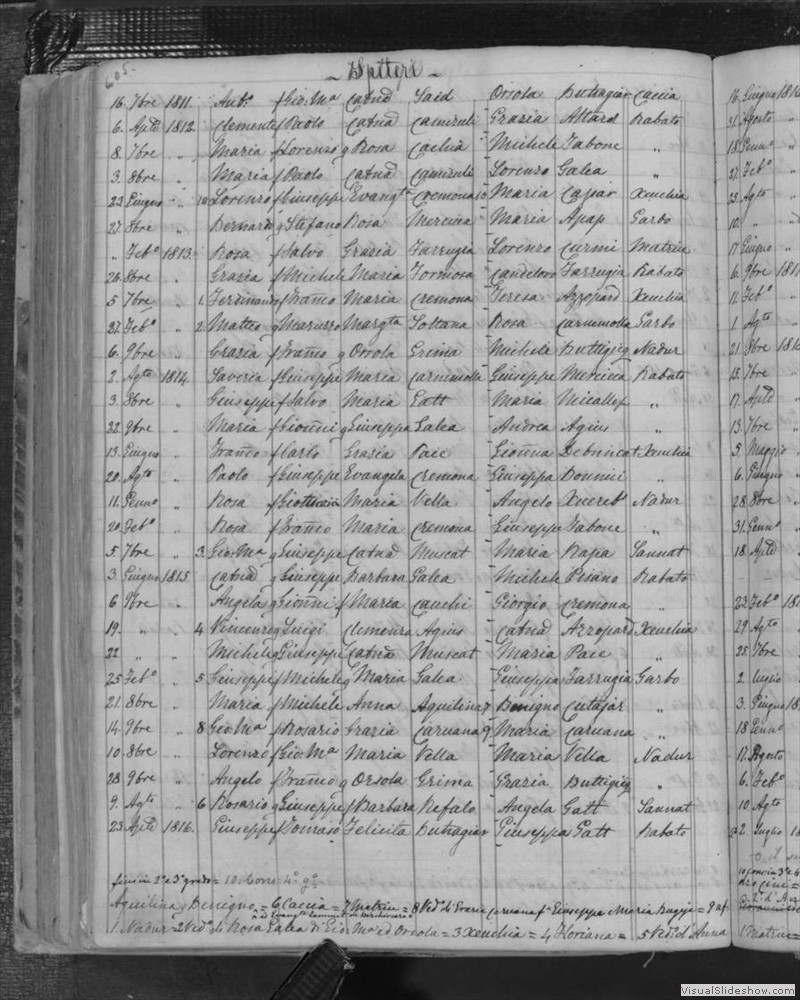 605.
Spiteri
16. 7bre 1811. Ant.o f Gio: M.a Catna Said Orsola Buttagiar Caccia
6. Aple 1812. Clemente f Paolo Catna Camenti Grazia Attard Rabato
8. 7bre " Maria f Lorenzo q Rosa Cachia Michele Tabone "
3. 8bre " Maria f Paolo Catna Camenti Lorenzo Galea "
22. Giugno " Lorenzo f Giuseppe Evang.ta Cremona Maria Caspar Xeuchia
27. 8bre " Bernardo q Stefano Rosa Mercieca Maria Apap Garbo
" Feb.o 1813. Rosa f Salvo Grazia Farrugia Lorenzo Curmi Matrice
26. 8bre " Grazia f Michele Maria Formosa Candeloro Farrugia Rabato
5 7bre " 1. Ferdinando f Franco Maria Cremona Teresa Azzopard Xeuchia
27. Feb.o " 2. Matteo q Marg.ta Soltana Rosa Carnemolla Garbo
6. 9bre " Grazia f Franco q Orsola Grima Michele Buttigieg Nadur
2. Ag.to 1814. Saveria f Giuseppe Maria Carnemolla Giuseppe Mercieca Rabato
3. 8bre " Giuseppe f Salvo Maria Gatt Maria Micallef "
22. 9bre " Maria f Gionni q Giuseppa Galea Andrea Agius "
13. Giugno " Franco f Carlo Grazia Pace Gionna Debrincat Xeuchia
20. Ag.to " Paolo f Giuseppe Evangela Cremona Giuseppa Bonnici "
11. Genn.o " Rosa f Maria Vella Angelo Xuereb Nadur
20. Feb.o " Rosa f Franco Maria Cremona Giuseppe Tabone "
5. 7bre " 3. Gio: M.a q Giuseppe Catna Muscat Maria Rapa Sannat
3. Giugno 1815 Catna q Giuseppe Barbara Galea Michele Pisano Rabato
6 9bre " Angela q Gionni f Maria Cauchi Giorgio Cremona "
19. " " 4 Vincenzo q Luigi Clemenza Agius Catna Azzopard Xeuchia
22 " " Michele q Giuseppe Catna Muscat Maria Pace "
25 Feb.o " 5 Giuseppe f Michele q Maria Galea Giuseppa Farrugia Garbo
21. 8bre " Maria f Michele Anna Aquilina 7 Benigno Cutajar "
14. 9bre " 8 Gio: M.a f Rosario Grazia Caruana 9 Maria Caruana "
10. 8bre " Lorenzo f Gio: M.a Maria Vella Maria Vella Nadur
28. 9bre " Angelo f Franco q Orsola Grima Grazia Buttigieg "
9. Ag.to " 6 Rosario q Giuseppe f Barbara Refalo Angela Gatt Sannat
23. Aple 1816. Giuseppe f Tomaso Felicita Buttagiar Giuseppa Gatt Rabato
Aquilina, Benigno = 6 Caccia = 7 Matrice = 8 Ved. di Grazia Caruana f.a Giuseppe Maria Bugeja = 9 af
1 Nadur = 2 Ved.o di Rosa Galea di Gio: M.a ed Orsola = 3 Xeuchia = 4 Floriana = 5 Ved.o d'Anna
16. Giugno 1816
31. Agosto "
18. Genn.o "
27. Feb.o
25. Ag.to
12. "
17 Giugno "
6. 9bre
11. Feb.o
1. Ag.to
21. 8bre
15. 7bre
17. Aple
13. 7bre
5. Maggio
6. Giugno
28. 8bre
31. Genn.o
18. Aple
22. Feb.o
29. Ag.to
25. 7bre
2. Luglio
3. Giugno
18 Genn.o
17. Agosto
6. Feb.o
10 Ag.to
2. Luglio
1 Matrice =
VisualSlideshow.com